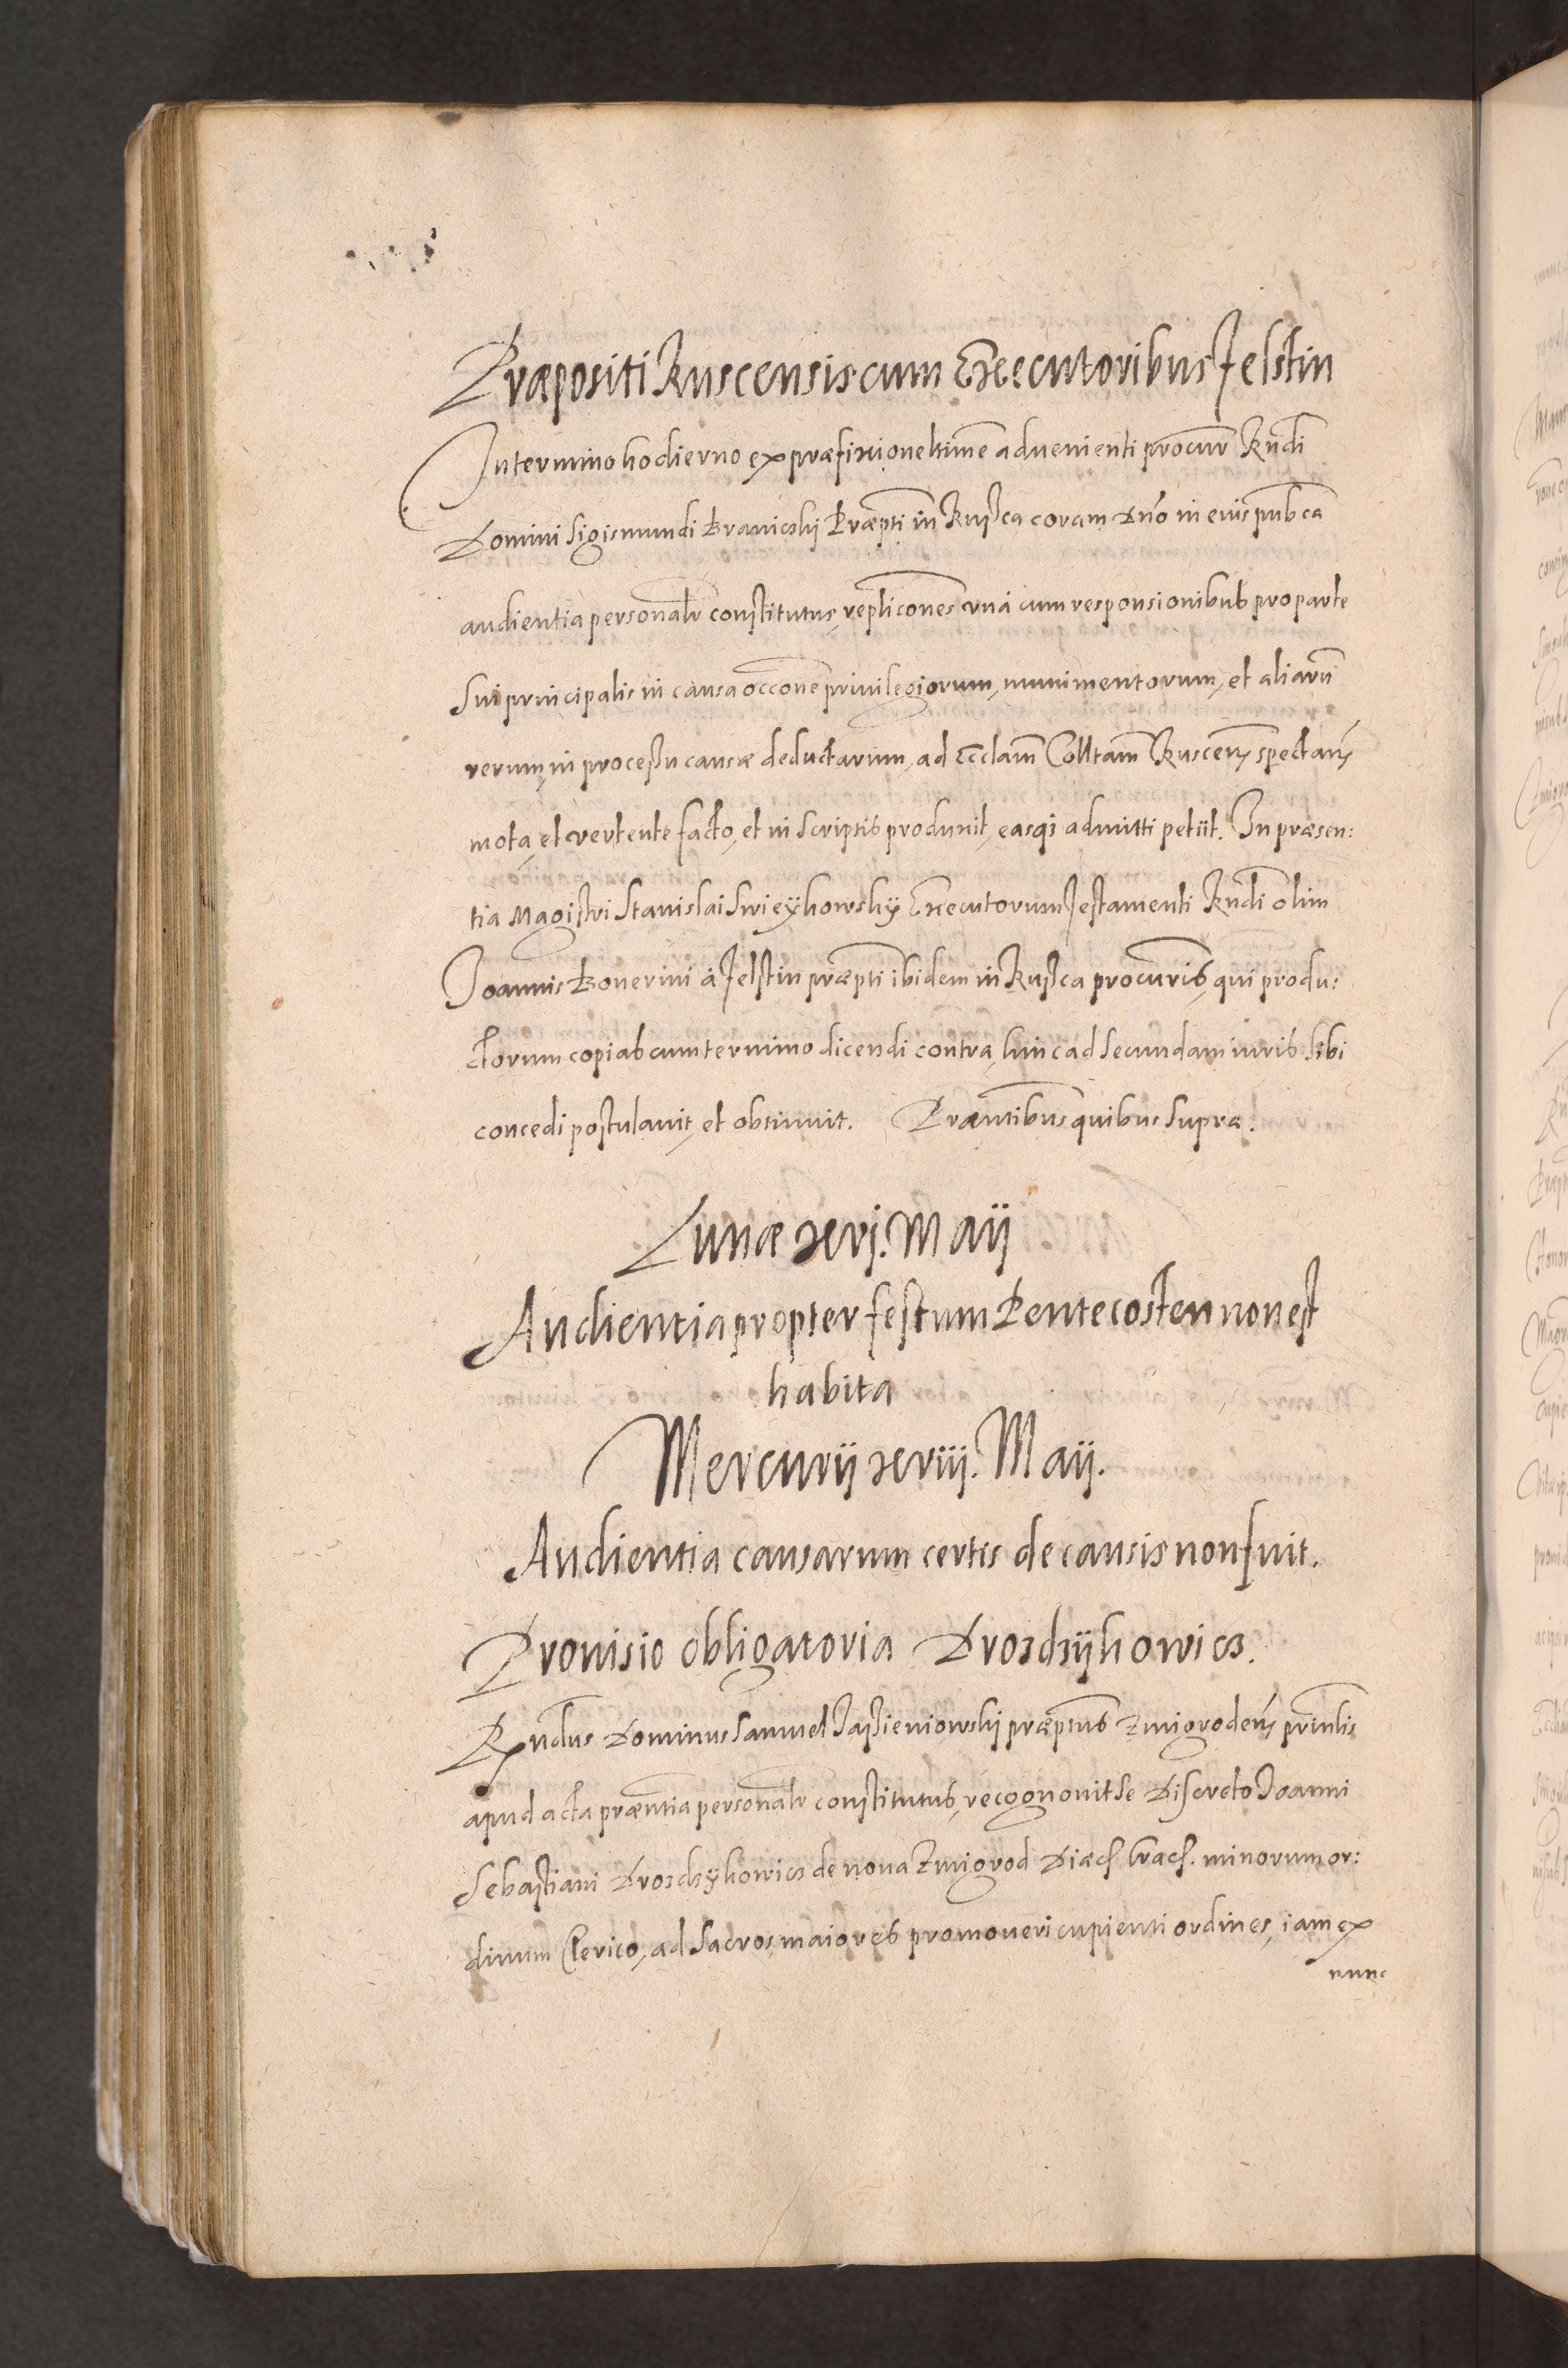 Præpositi Ruscensis cum Executoribus Jelstin
In termino hodierno ex præfixione ltime advenienti procur Rndi
Domini Sigismundi Branicski Præpti in Rusca coram Dno in eius pubca
audientia personalr constitutus, replicones una cum responsionibus pro parte
sui principalis in causa occone privilegiorum, munimentorum, et aliaru
rerum, in processu causæ deductarum, ad Ecclam Colltam Ruscens spectans
mota, et vertente facto, et in scriptis produxit, easqs admitti petiit. In præsen:
tia Magistri Stanislai Swieykowsky Executorum Testamenti Rndi olim
Joannis Bonerini à Jelstin præpti ibidem in Rusca procuris, qui produ:
ctorum copias cum termino dicendi contra, hinc ad secundam iuris sibi
concedi postulavit, et obtinuit. Præntibus quibus supra.
Lunæ xvj. Maij
Audientia propter festum Pentecosten non est
habita
Mercurij xviij. Maij.
Audientia causarum certis de causis non fuit.
Provisio obligatoria Drozdzykowicz.
Rndus Dominus Samuel Jassieniowski præptus Zmigrodens printlis
apud acta præntia personalr constitutus, recognovit se Discreto Joanni
Sebastiani Drozdzykowicz de nova Zmigrod Diæcs. Cracs. minorum or:
dinum Clerico, ad sacros maiores promoveri cupienti ordines, iam ex
nunc